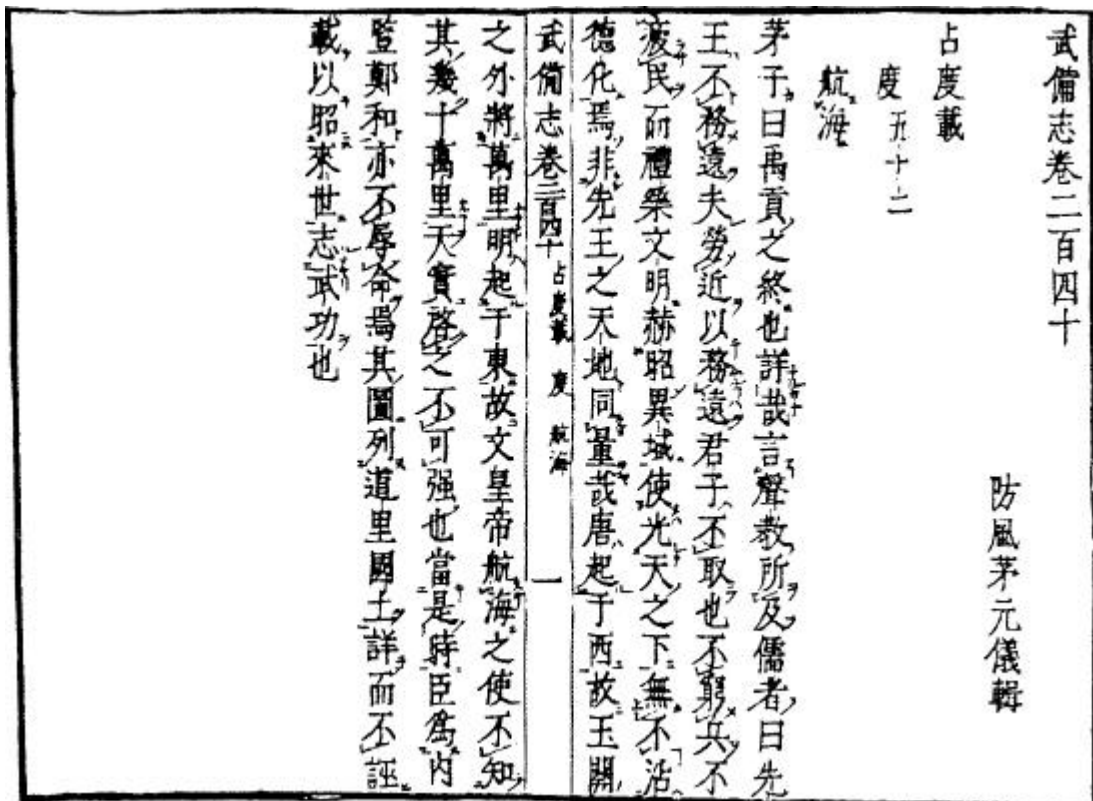 武備志卷二百四十
防風茅元儀輯
占度載
度 五十二
航海
茅子曰禹貢之終也詳哉言聲教所及儒者曰先
王不務遠夫勞近以務遠君子不取也不窮兵不
疲民而禮樂文明赫昭異域使光天之下無不沾
德化焉非先王之天地同量哉唐起于西故玉關
武備志卷二百四十 占度載 度 航海 一
之外將萬里明起于東故文皇帝航海之使不知
其幾十萬里天實啓之不可强也當是時臣爲內
豎鄭和亦不辱命焉其圖列道里國土詳而不誣
載以昭來世志武功也